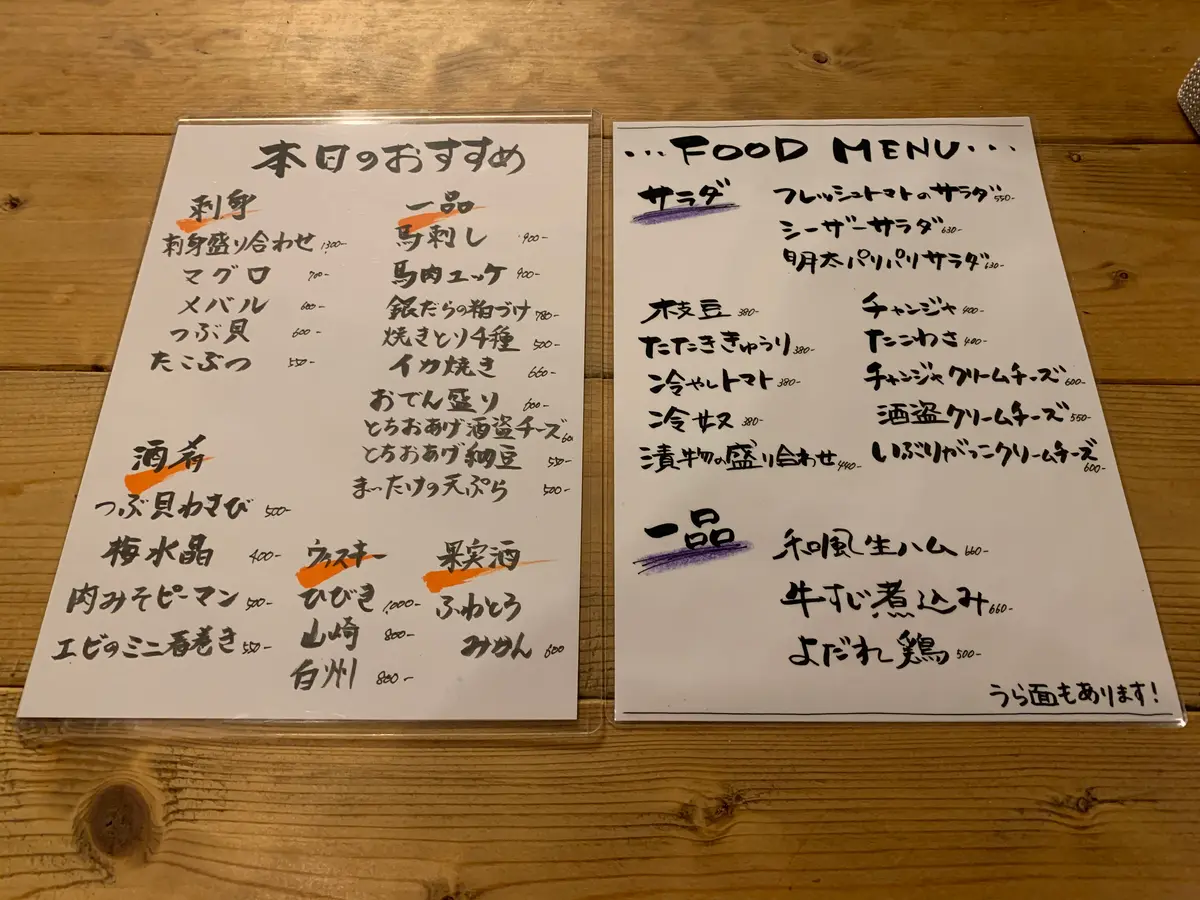 本日のおすすめ
刺身
刺身盛り合わせ 1300-
マグロ 700-
メバル 600-
つぶ貝 600-
たこぶつ 550-
酒肴
つぶ貝わさび 500-
梅水晶 400-
肉みそピーマン 500-
エビのミニ春巻き 550-
一品
馬刺し 900-
馬肉ユッケ 900-
銀だらの粕づけ 780-
焼きとり4種 500-
イカ焼き 660-
おでん盛り 600-
とちおあげ酒盗チーズ
とちおあげ納豆 550-
まいたけの天ぷら 500-
ウィスキー
ひびき 1000-
山崎 800-
白州 800-
果実酒
ふわとろ
みかん 600
...FOOD MENU...
サラダ
フレッシュトマトのサラダ 550-
シーザーサラダ 630-
明太パリパリサラダ 630-
枝豆 380-
たたききゅうり 380-
冷やしトマト 380-
冷奴 380-
漬物の盛り合わせ 440-
チャンジャ 400-
たこわさ 400-
チャンジャクリームチーズ 600-
酒盗クリームチーズ 550-
いぶりがっこクリームチーズ 600-
一品
和風生ハム 660-
牛すじ煮込み 660-
よだれ鶏 500-
うら面もあります!